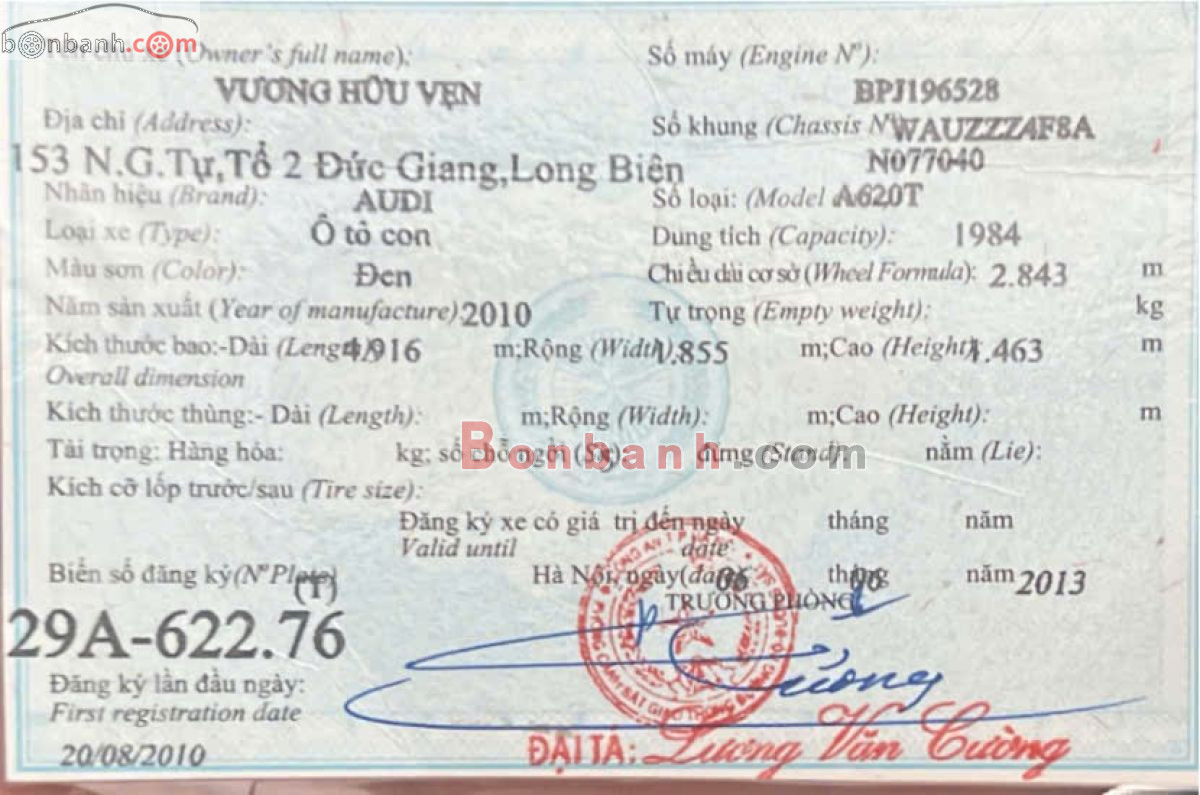 bonbanh.com
Tên chủ xe (Owner's full name): Số máy (Engine Nº):
VƯƠNG HỮU VẸN BPJ196528
Địa chỉ (Address): Số khung (Chassis Nº WAUZZZ4F8A
153 N.G.Tự,Tổ 2 Đức Giang,Long Biên N077040
Nhãn hiệu (Brand): AUDI Số loại: (Model A620T
Loại xe (Type): Ô tô con Dung tích (Capacity): 1984
Màu sơn (Color): Đen Chiều dài cơ sở (Wheel Formula): 2.843 m
Năm sản xuất (Year of manufacture) 2010 Tự trọng (Empty weight): kg
Kích thước bao:-Dài (Length) 4.916 m;Rộng (Width) 1.855 m;Cao (Height) 1.463 m
Overall dimension
Kích thước thùng:- Dài (Length): m;Rộng (Width): m;Cao (Height): m
Tải trọng: Hàng hóa: kg; số chỗ ngồi đứng (Stand): nằm (Lie):
Bonbanh.com
Kích cỡ lốp trước/sau (Tire size):
Đăng ký xe có giá trị đến ngày tháng năm
Valid until date
Biển số đăng ký(Nº Plate) (T) Hà Nội, ngày(date) 06 tháng 06 năm 2013
TRƯỞNG PHÒNG
29A-622.76
Đăng ký lần đầu ngày:
First registration date
20/08/2010 ĐẠI TÁ: Lương Văn Cường